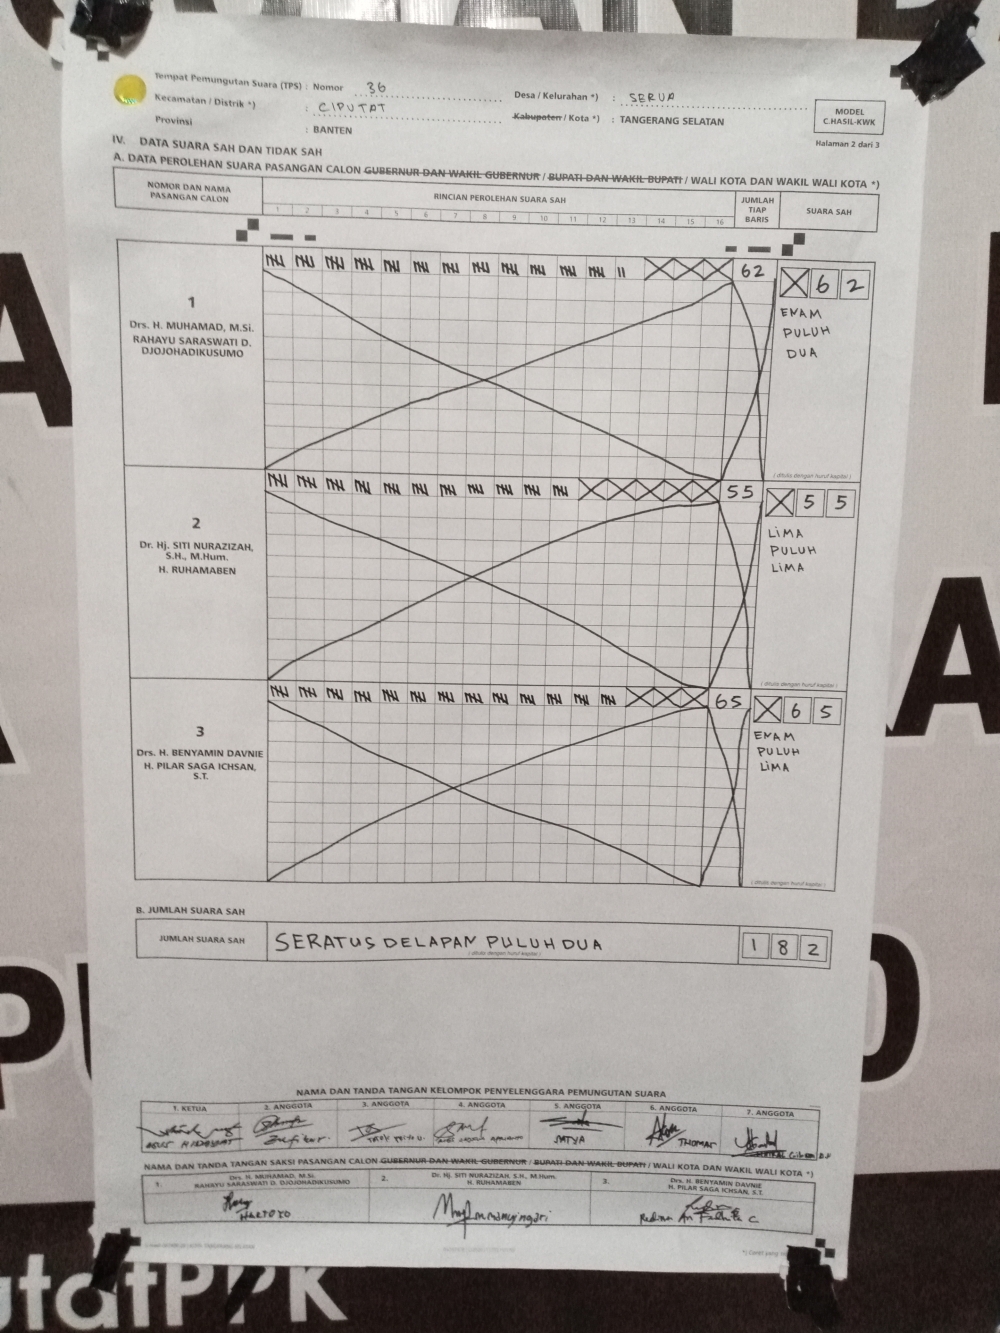 Tempat Pemungutan Suara (TPS) : Nomor 36
Desa / Kelurahan *) : SERUA
Kecamatan / Distrik *) : CIPUTAT
Kabupaten / Kota *) : TANGERANG SELATAN
Provinsi : BANTEN
MODEL
C.HASIL-KWK
Halaman 2 dari 3
IV. DATA SUARA SAH DAN TIDAK SAH
A. DATA PEROLEHAN SUARA PASANGAN CALON GUBERNUR DAN WAKIL GUBERNUR / BUPATI DAN WAKIL BUPATI / WALI KOTA DAN WAKIL WALI KOTA *)
NOMOR DAN NAMA
PASANGAN CALON
RINCIAN PEROLEHAN SUARA SAH
1 2 3 4 5 6 7 8 9 10 11 12 13 14 15 16
JUMLAH
TIAP
BARIS
SUARA SAH
1
Drs. H. MUHAMAD, M.Si.
RAHAYU SARASWATI D.
DJOJOHADIKUSUMO
62
X 6 2
ENAM
PULUH
DUA
( ditulis dengan huruf kapital )
2
Dr. Hj. SITI NURAZIZAH,
S.H., M.Hum.
H. RUHAMABEN
55
X 5 5
LIMA
PULUH
LIMA
( ditulis dengan huruf kapital )
3
Drs. H. BENYAMIN DAVNIE
H. PILAR SAGA ICHSAN,
S.T.
65
X 6 5
ENAM
PULUH
LIMA
( ditulis dengan huruf kapital )
B. JUMLAH SUARA SAH
JUMLAH SUARA SAH
SERATUS DELAPAN PULUH DUA
( ditulis dengan huruf kapital )
1 8 2
NAMA DAN TANDA TANGAN KELOMPOK PENYELENGGARA PEMUNGUTAN SUARA
1. KETUA
2. ANGGOTA
3. ANGGOTA
4. ANGGOTA
5. ANGGOTA
6. ANGGOTA
7. ANGGOTA
SATYA
THOMAS
NAMA DAN TANDA TANGAN SAKSI PASANGAN CALON GUBERNUR DAN WAKIL GUBERNUR / BUPATI DAN WAKIL BUPATI / WALI KOTA DAN WAKIL WALI KOTA *)
1.
Drs. H. MUHAMAD, M.Si.
RAHAYU SARASWATI D. DJOJOHADIKUSUMO
2.
Dr. Hj. SITI NURAZIZAH, S.H., M.Hum.
H. RUHAMABEN
3.
Drs. H. BENYAMIN DAVNIE
H. PILAR SAGA ICHSAN, S.T.
HARTOYO